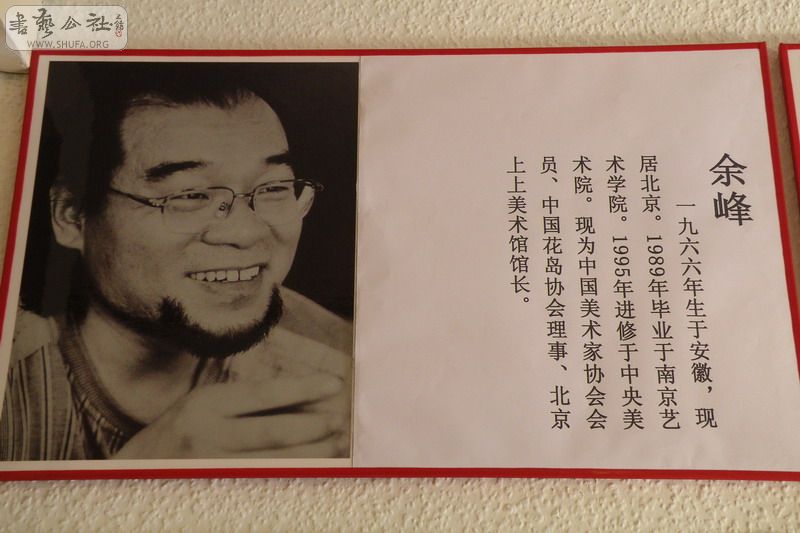 書藝公社
WWW.SHUFA.ORG
余峰
一九六六年生于安徽，现
居北京。1989年毕业于南京艺
术学院。1995年进修于中央美
术院。现为中国美术家协会会
员、中国花岛协会理事、北京
上上美术馆馆长。